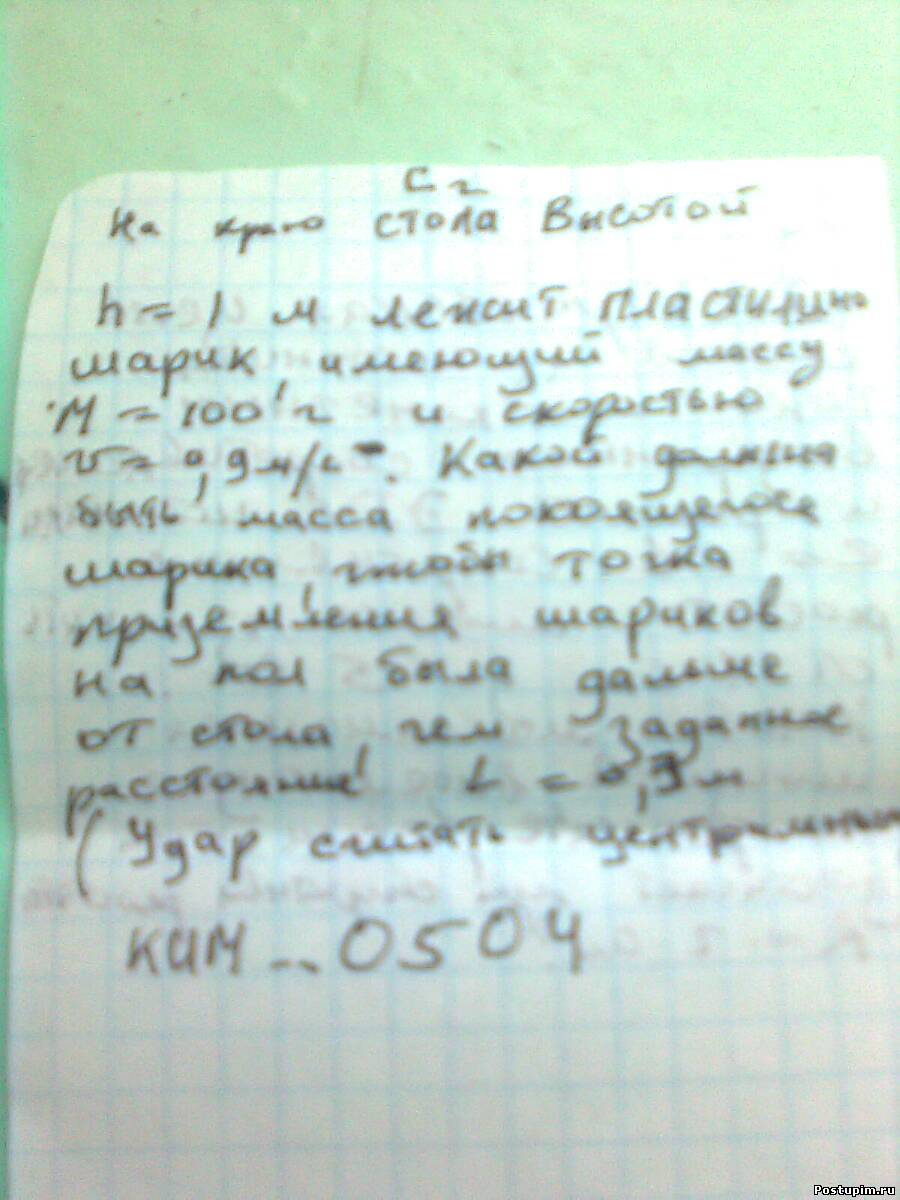 С2
На краю стола высотой
h = 1 м лежит пластилинь
шарик имеющий массу
М = 100 г и скоростью
v = 0,9 м/с. Какой должна
быть масса покоящегося
шарика, чтобы точка
приземления шариков
на пол была дальше
от стола, чем заданное
расстояние L = 0,3 м
(Удар считать центральным
КИМ -- 0504
Postupim.ru